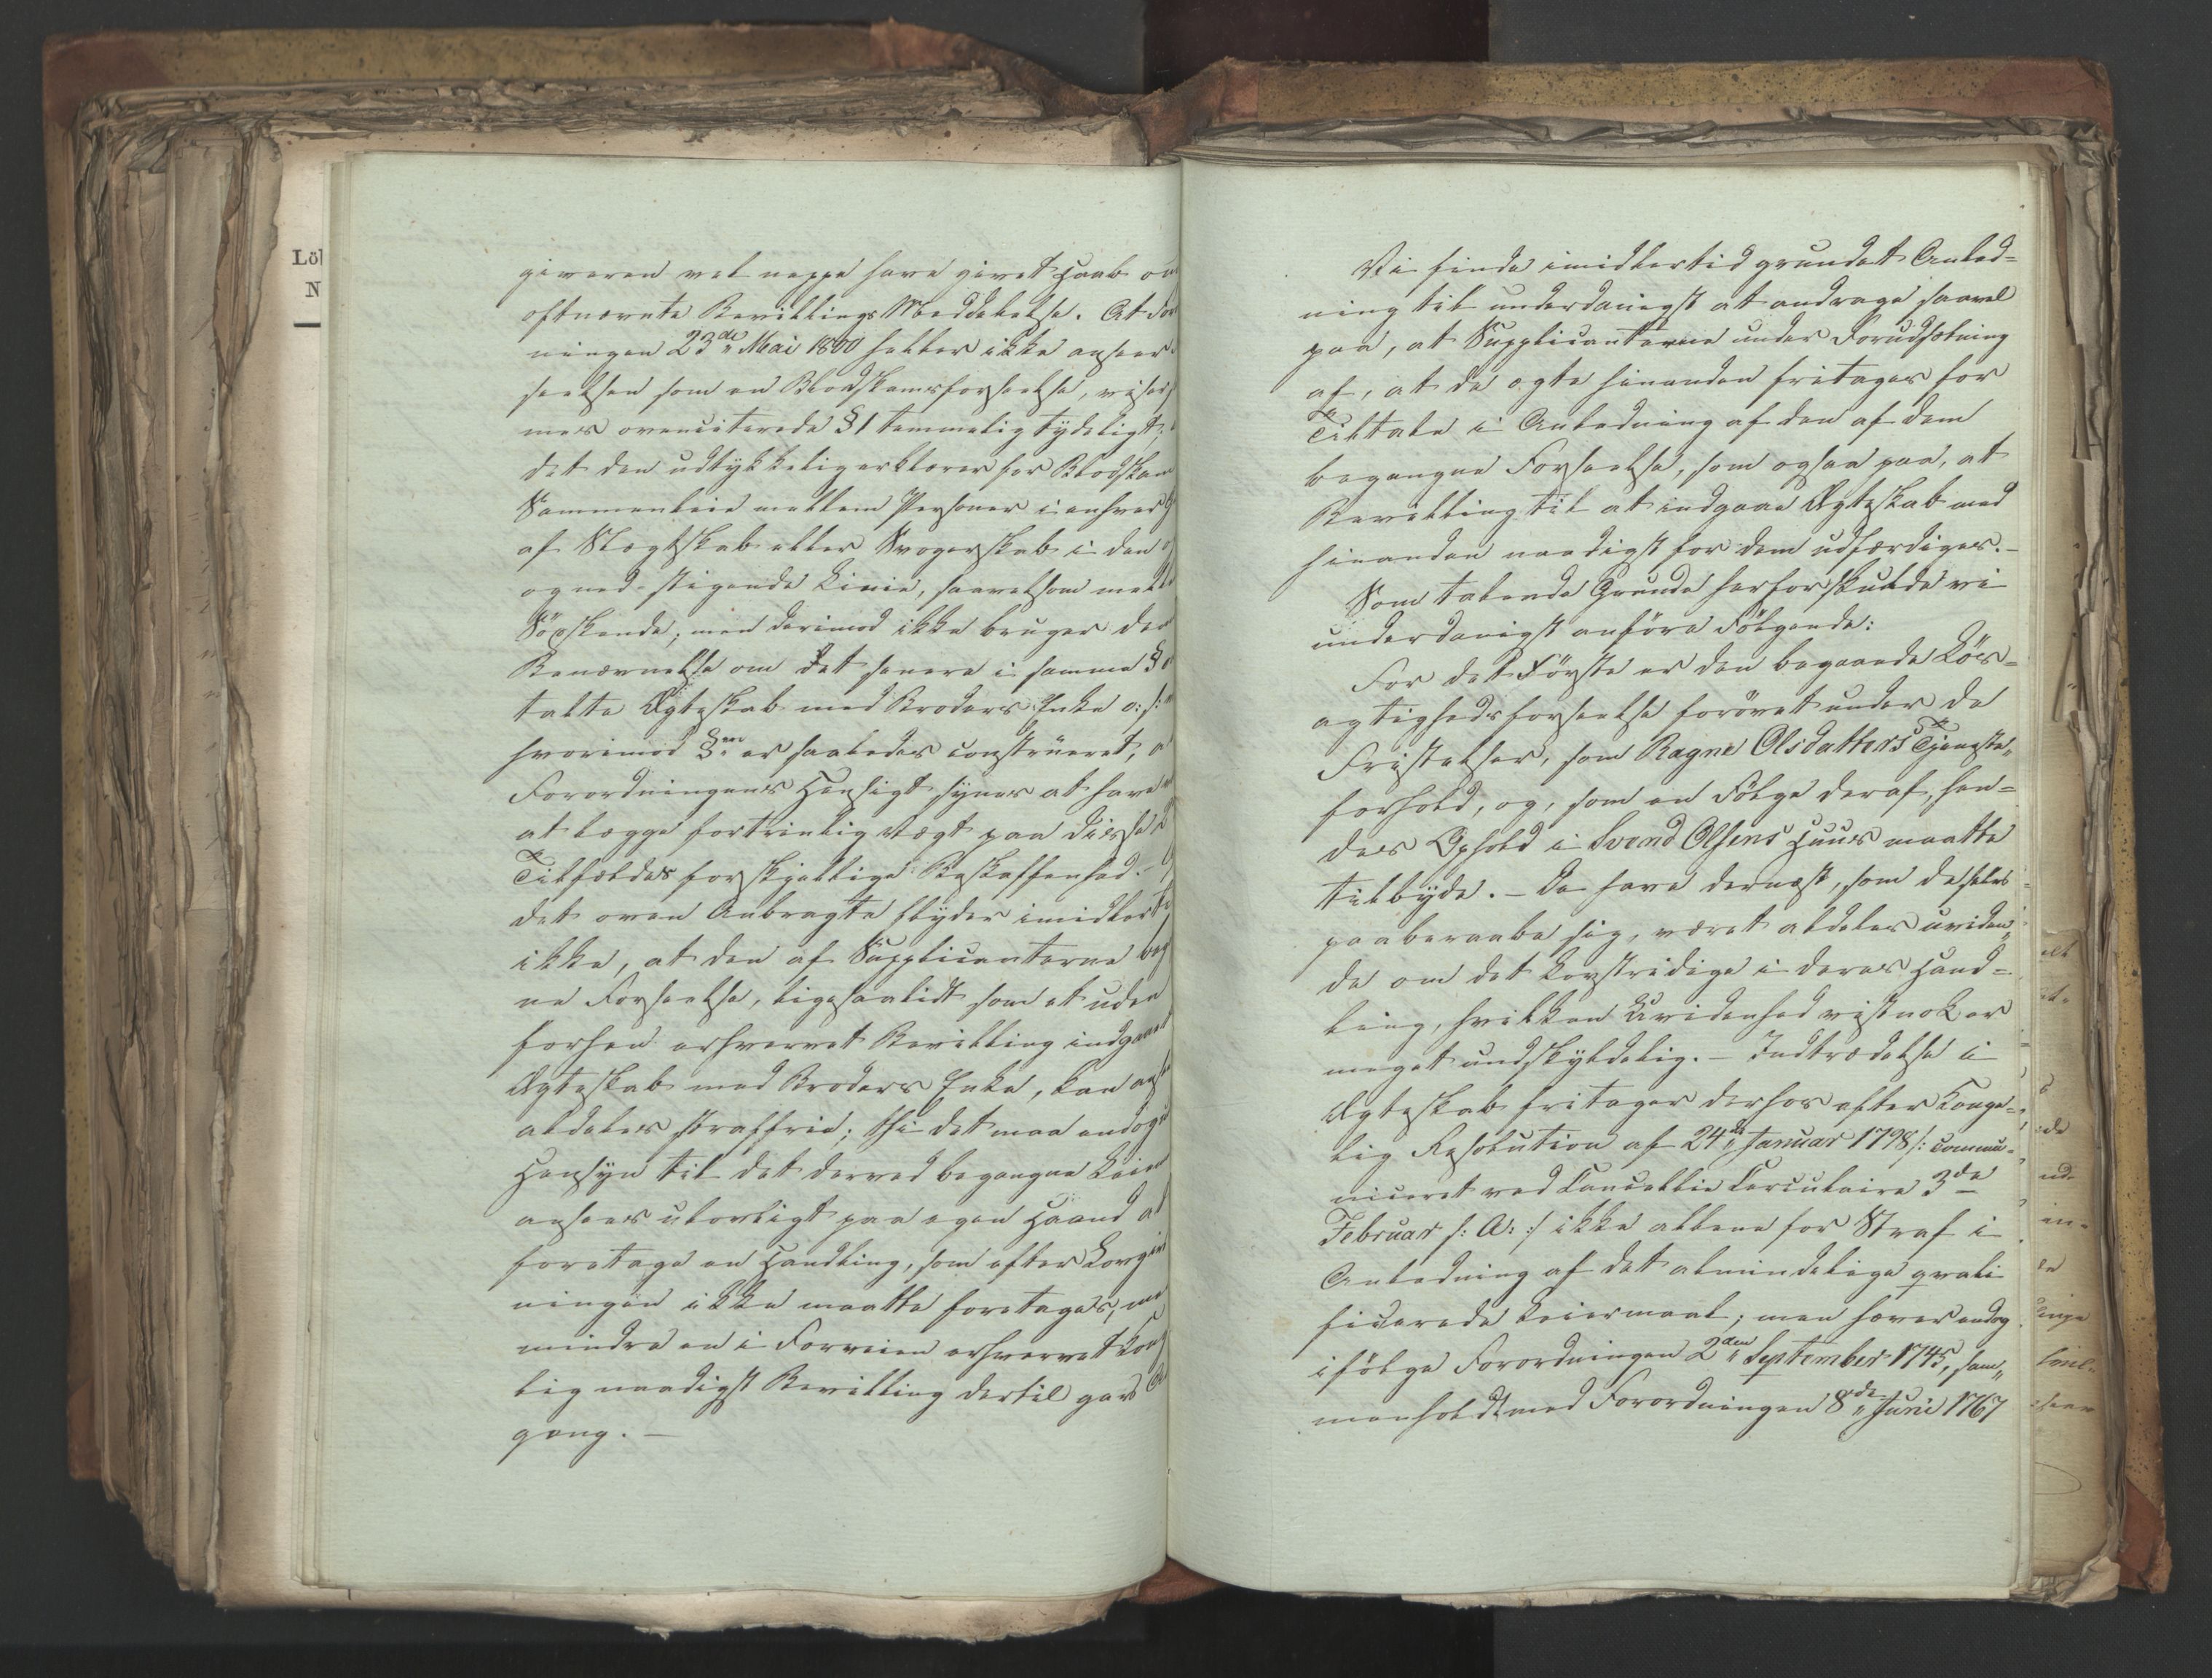 Löb
N
giveren vel neppe have givet Haab om
oftnævnte Bevillings Meddelelse. At For
ningen 23de Mai 1800 heller ikke anseer
seelsen som en Blodskamsforseelse, viser
mes ovenciterede § 1 temmelig tydeligt,
det den udtykkelig erklærer for Blodskam
Sammenleie mellem Personer i enhver
af Slægtskab eller Svogerskab i den
og ned-stigende Linie, saavelsom mell
Söskende; men derimod ikke bruger den
Benævnelse om det senere i samme §
talte Ægteskab med Broders Enke o: s:
hvorimod §en er saaledes construeret, a
Forordningens Hensigt synes at have
at lægge fortrinlig Vægt paa disse
Tilfældes forskjellige Beskaffenhed. –
det oven Anbragte flyder imidlerti
ikke, at den af Supplicanterne beg
ne Forseelse, ligesaalidt som et uden
forhen erhvervet Bevilling indgaaet
Ægteskab med Broders Enke, kan anse
aldeles straffrie; thi det maa endog
Hensyn til det derved begangne Leier
ansees ulovligt paa egen Haand at
foretage en Handling, som efter Lovgiv
ningen ikke maatte foretages, med
mindre en i Forveien erhvervet Kong
lig naadigst Bevilling dertil gav
gang. –
Vi finde imidlertid grundet Anled-
ning til underdanigst at andrage saavel
paa, at Supplicanterne under Forudsætning
af, at de ægte hinanden fritages for
Tiltale i Anledning af den af dem
begangne Forseelse, som ogsaa paa, at
Bevilling til at indgaae Ægteskab med
hinanden naadigst for dem udfærdiges. –
Som talende Grunde herfor skulde vi
underdanigst anföre Fölgende:
For det Förste er den begaaede Lös-
agtighedsforseelse forövet under de
Fristelser, som Ragne Olsdatters Tjeneste-
forhold, og, som en Fölge deraf, hen-
des Ophold i Svend Olsens Huus maatte
tilbyde. – De have dernæst, som de selv
paaberaabe sig, været aldeles uviden-
de om det Lovstridige i deres Hand-
ling, hvilken Uvidenhed vistnok er
meget undskyldelig. – Indtrædelse i
Ægteskab fritager derhos efter Konge-
lig Resolution af 24de Januar 1798 /: commu-
niceret ved Cancellie Circulaire 3de
Februar s: A: :/ ikke allene for Straf i
Anledning af det almindelige qvali
ficerede Leiermaal; men hæver endog
ifölge Forordningen 2den September 1745, sam-
menholdt med Forordningen 8de Junii 1767